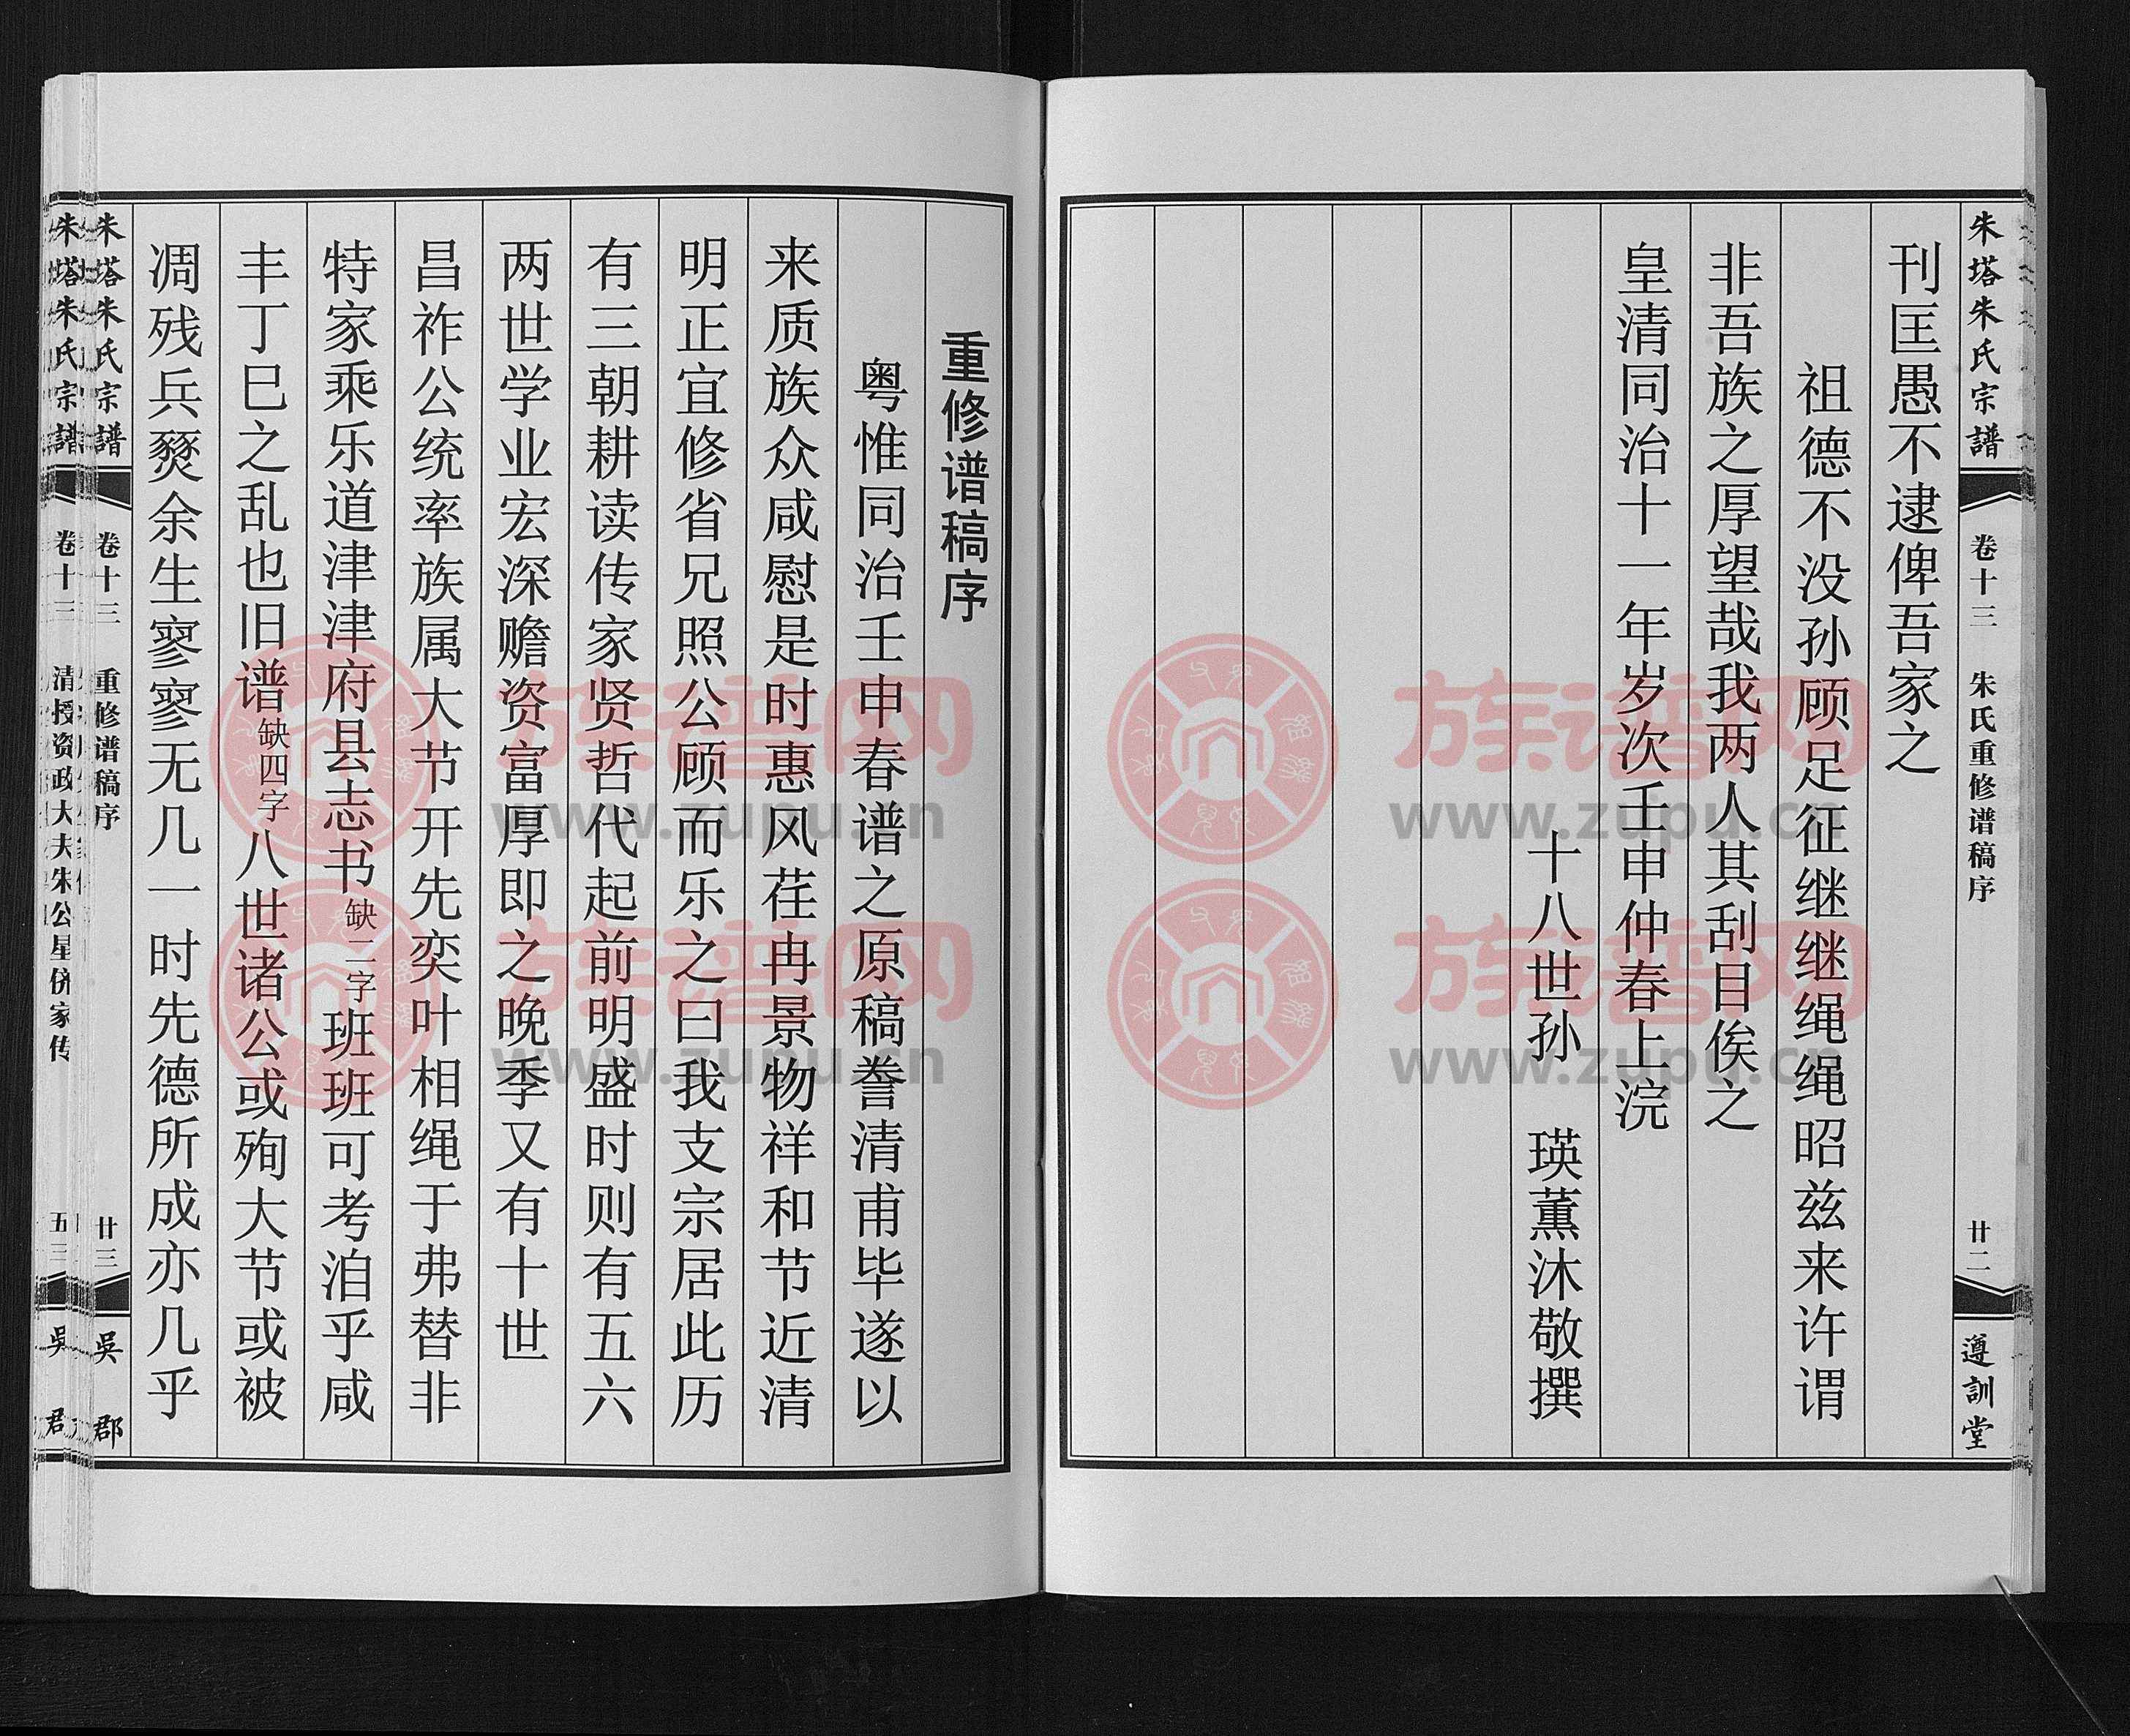 朱塔朱氏宗譜
卷十三
朱氏重修谱稿序
廿二
遵訓堂
刊匡愚不逮俾吾家之
祖德不没孙顾足征继继绳绳昭兹来许谓
非吾族之厚望哉我两人其刮目俟之
皇清同治十一年岁次壬申仲春上浣
十八世孙 瑛薰沐敬撰
重修谱稿序
粤惟同治壬申春谱之原稿誊清甫毕遂以
来质族众咸慰是时惠风荏冉景物祥和节近清
明正宜修省兄照公顾而乐之曰我支宗居此历
有三朝耕读传家贤哲代起前明盛时则有五六
两世学业宏深赡资富厚即之晚季又有十世
昌祚公统率族属大节开先奕叶相绳于弗替非
特家乘乐道津津府县志书缺二字班班可考洎乎咸
丰丁巳之乱也旧谱缺四字八世诸公或殉大节或被
凋残兵燹余生寥寥无几一时先德所成亦几乎
朱塔朱氏宗譜
卷十三
重修谱稿序
廿三
吳郡
朱塔朱氏宗譜
卷十三
清授资政大夫朱公星侪家传
五三
吳君
族谱网
www.zupu.cn
族谱网
www.zupu.cn
族谱网
www.zupu.cn
族谱网
www.zupu.cn